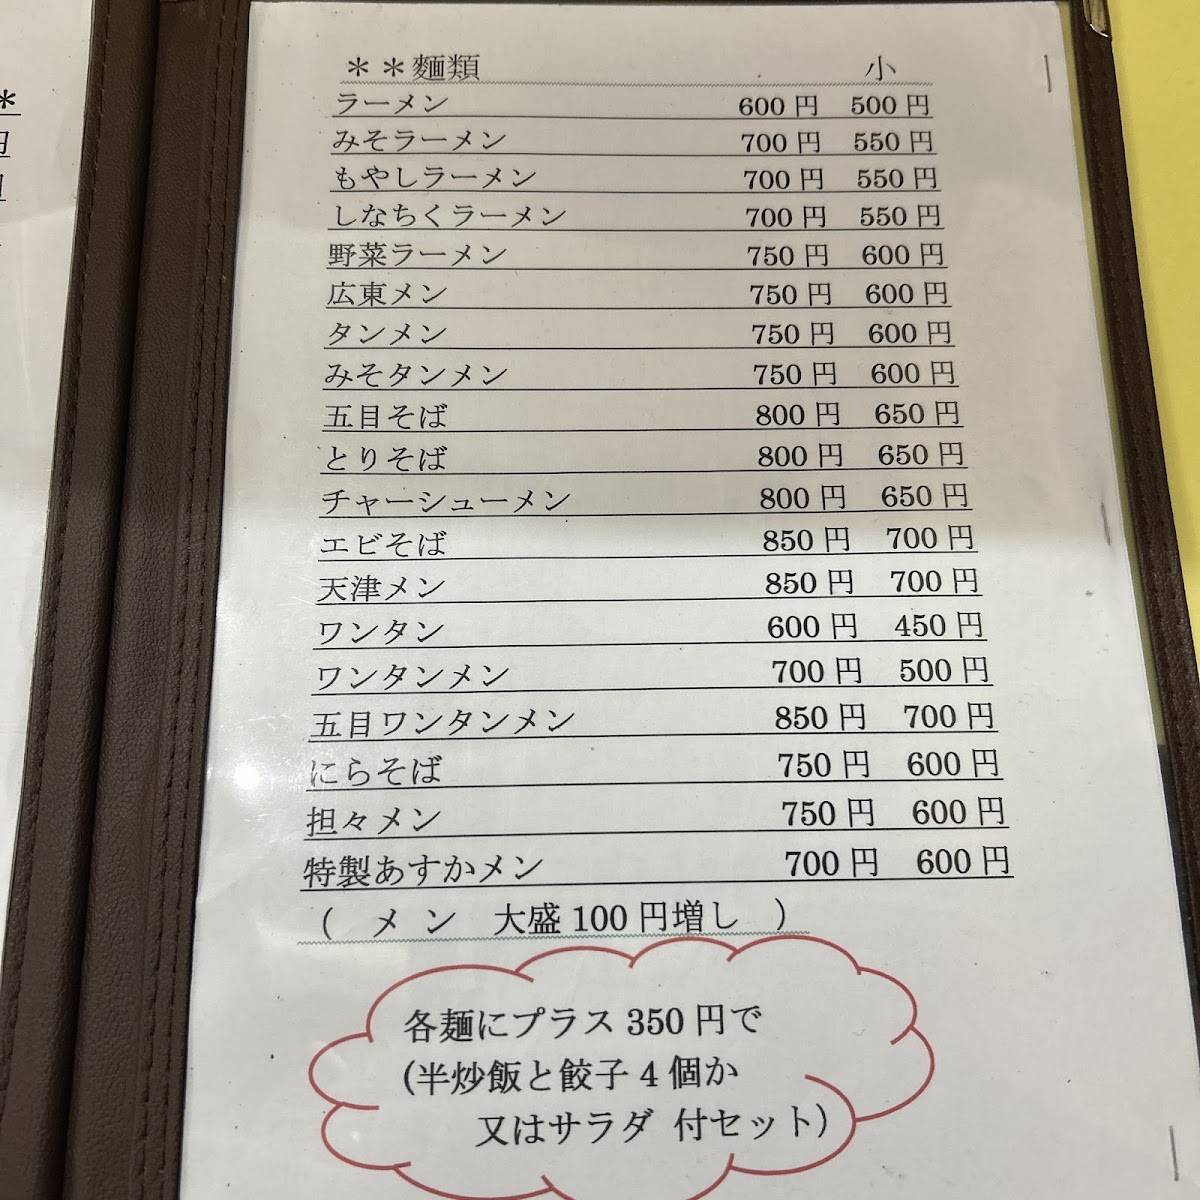 ＊
円
＊＊麵類 小
ラーメン 600円 500円
みそラーメン 700円 550円
もやしラーメン 700円 550円
しなちくラーメン 700円 550円
野菜ラーメン 750円 600円
広東メン 750円 600円
タンメン 750円 600円
みそタンメン 750円 600円
五目そば 800円 650円
とりそば 800円 650円
チャーシューメン 800円 650円
エビそば 850円 700円
天津メン 850円 700円
ワンタン 600円 450円
ワンタンメン 700円 500円
五目ワンタンメン 850円 700円
にらそば 750円 600円
担々メン 750円 600円
特製あすかメン 700円 600円
（　メン　大盛100円増し　）
各麺にプラス350円で
(半炒飯と餃子4個か
又はサラダ 付セット)